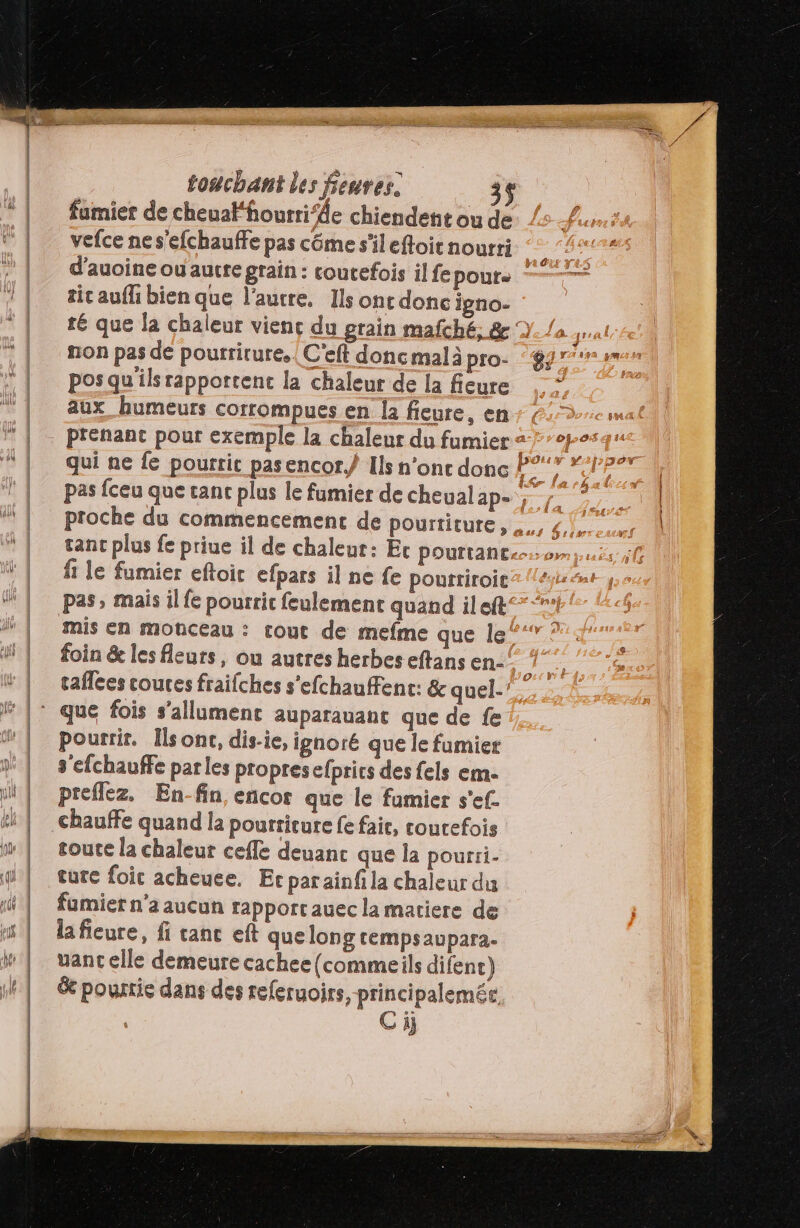 touchant les fieures. 35
fumier de cheual nourri de chiendent ou de
vesce ne s'eſchauffe pas cõme s'il eſtoit nourri
d'auoine ou autre grain : toutefois il ſe pour-
rit auſſi bien que l'autre. Ils ont donc igno-
ré que la chaleur vient du grain maſché, &
non pas de pourriture. C'eſt donc mal à pro-
pos qu'ils rapportent la chaleur de la fieure
aux humeurs corrompues en la fieure, en
prenant pour exemple la chaleur du fumier
qui ne ſe pourrit pas encor. Ils n'ont donc
pas ſceu que tant plus le fumier de cheual ap-
proche du commencement de pourriture,
tant plus ſe priue il de chaleur: Et pourtant
ſi le fumier eſtoit eſpars il ne ſe pourriroit
pas, mais il ſe pourrit ſeulement quand il eſt
mis en monceau : tout de meſme que le
foin & les fleurs, ou autres herbes eſtans en-
taſſees toutes fraiſches s'eſchauffent: & quel-
que fois s'allument auparauant que de ſe
pourrir. Ils ont, dis-ie, ignoré que le fumier
s'eſchauffe par les propres eſprits des ſels em-
preſſez. En-fin, encor que le fumier s'eſ-
chauffe quand la pourriture ſe fait, toutefois
toute la chaleur ceſſe deuant que la pourri-
ture ſoit acheuee. Et par ainſi la chaleur du
fumier n'a aucun rapport auec la matiere de
la fieure, ſi tant eſt que long temps aupara-
uant elle demeure cachee (comme ils diſent)
& pourrie dans des reſeruoirs, principalemẽt
C ij